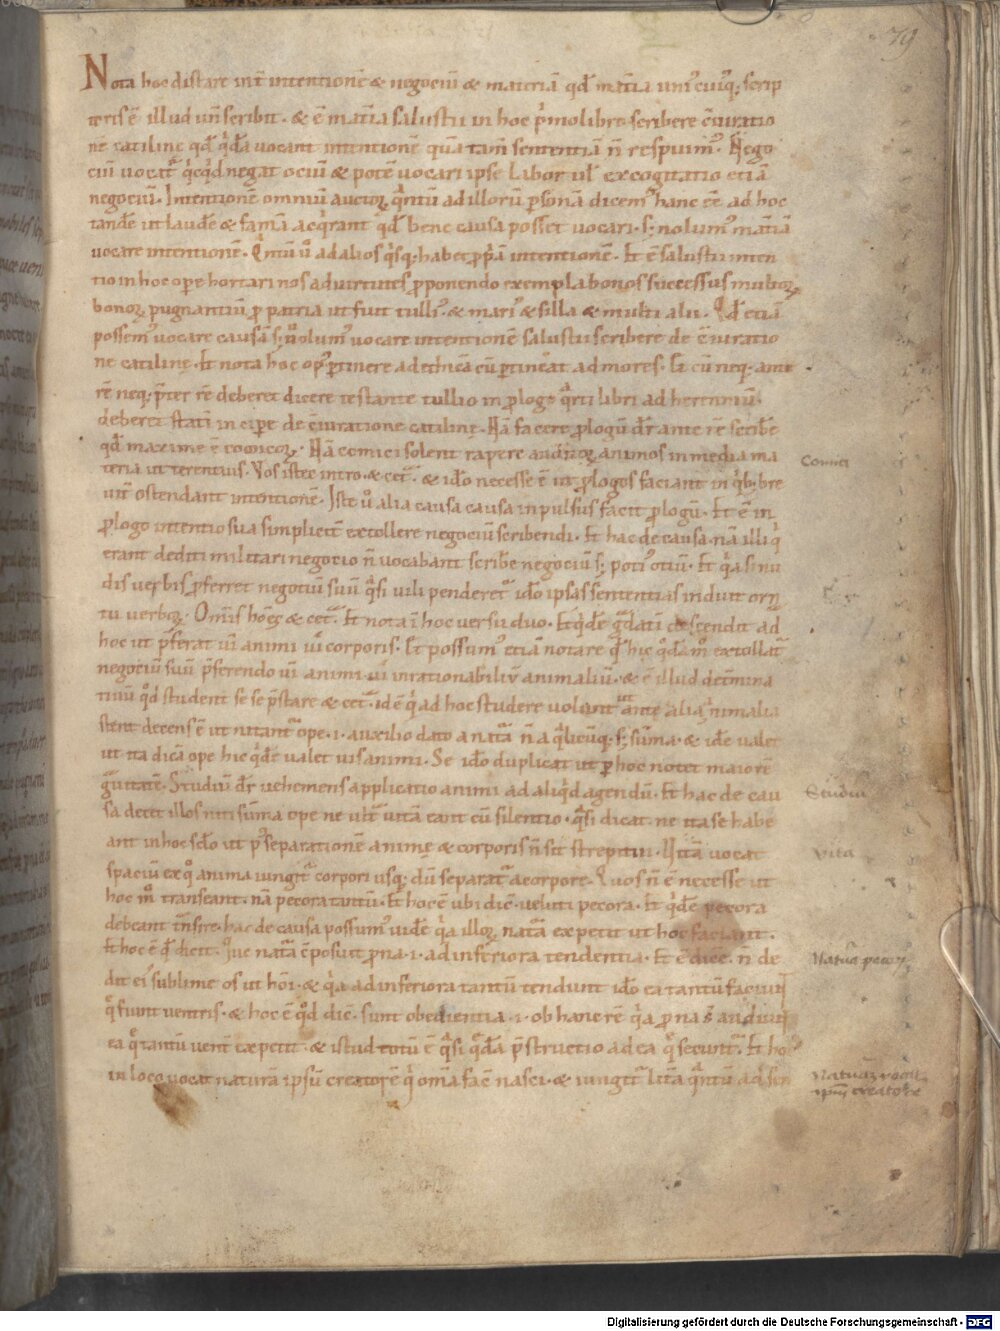 79
Nota hoc distare int̄ intentionē & negociū & materiā qd̄ mat̄ia uniꝰcuiꝰq; scrip
toris ē illud uñ scribit · & ē mat̄ia salustii in hoc p̓mo libro scribere c̄iuratio
nē catiline qd̄ q̓dā uocant intentionē quā tam̄ sententiā n̄ respuimꝰ · Nego
ciū uocat̄ q̓cq̓d negat ociū & potē uocari ipse labor ul̓ excogitatio etiā
negociū · Intentionē omniū auctoꝝ q̓ntū ad illorū p̱sonā dicemꝰ hanc eē ad hoc
tandē ut laudē & famā acq̓rant qd̄ bene causa posset uocari · s; nolumꝰ mat̄iā
uocare intentionē · Q̓ntū ū ad alios q̓sq; habet p̱p̓ā intentionē · Et ē salustii inten
tio in hoc oꝑe hortari nos ad uirtutes ꝓponendo exempla bonos successus multoꝝ
bonoꝝ pugnantiū ꝓ patria ut fuit tulliꝰ & mariꝰ & silla & multi alii · Qd̄ etiā
possemꝰ uocare causā s; nolumꝰ uocare intentionē salustii scribere de c̄iuratio
ne catilinę · Et nota hoc opꝰ ꝑtinere ad ethicā cū ꝑtineat ad mores · Et cū neq; ante
rē neq; p̄ter rē deberet dicere testante tullio in ꝓlogo q̓rti libri ad herenniū
deberet statī incipe de c̄iuratione catilinę · Nā facere ꝓlogū d̄r ante rē scribe
qd̄ maxime ē comicoꝝ · Nā comici solent rapere auditoꝝ animos in media ma
teria ut terentius · Vos istec intro · & cet̄ · & iđo necesse ē ut ꝓlogos faciant in q̓b; bre
uit̄ ostendant intentionē · Iste ū alia causa causa inpulsus facit ꝓlogū · Et ē in
ꝓlogo intentio sua simplicit̄ extollere negociū scribendi · Et hac de causa · nā illi q̓
erant dediti militari negotio n̄ uocabant scribe negociū s; potiꝰ otiū · Et q̓a si nu
dis uerbis ꝓferret negotiū suū q̓si uili penderet̄ iđo ipsas sententias induit orna
tu uerboꝝ · Omīs hoēs & cet̄ · Et nota ī hoc uersu duo · Et q̓dē descendit ad
hoc ut p̄ferat uī animi uī corporis · Et possumꝰ etiā notare q̄ hic q̓dāmᵒ extollat
negociū suū p̄ferendo uī animi uī inrationabiliū animaliū · & ē illud det̄mina
tiuū qᵒd student se se p̄stare & cet̄ · id ē q̓a ad hoc studere uolunt ut ante alia animalia
stent decens ē ut nitant̄ ope · i · auxilio dato a nat̄a n̄ a q̓licūq; s; sūma · & idē ualet
ut ita dicā ope hic q̓dē ualet uis animi · Se iđo duplicat ut ꝑ hoc notet maiorē
g̓uitatē · Studiū d̄r uehemens applicatio animi ad aliq̓d agendū · Et hac de cau
sa decet illos niti sūma ope ne uitā eant cū silentio · q̓si dicat · ne ita se habe
ant in hoc sc̄lo ut p̱ꝰ separationē animę & corporis n̄ sit strepitus · Vitā uocat
spaciū ex qᵒ anima iungit̄ corpori usq; dū separat̄ a corpore · Quos n̄ ē necesse ut
hoc mᵒ transeant · nā pecora tantū · Et hoc ē ubi dic̄ · ueluti pecora · Et q̓dē pecora
debeant t̄nsire · hac de causa possumꝰ uidē q̓a illoꝝ nat̄a expetit ut hoc faciant ·
Et hoc ē qđ dicit · Que nat̄a c̄posuit prona · i · ad inferiora tendentia · Et ē dicē · n̄ de
dit eis sublime os ut hōi · & q̓a ad inferiora tantū tendunt iđo ea tantū faciunt
q̄ sunt uentris · & hoc ē qᵒd dic̄ · sunt obedientia · i · ob hanc rē q̓a prona s̄ audiunt
ea q̄ tantū uent̄ expetit · & istud totū ē q̓si q̓dā p̄structio ad ea q̄ secunt̄ · Et hoc
in loco uocat naturā ipsū creatorē q̓ omīa fac̄ nasci · & iungit̄ lit̄a q̓ntū ad sen
Comici
Studiū
Vita
Natura pecorꝝ
Naturā uocat
ipsum creatorē
Digitalisierung gefördert durch die Deutsche Forschungsgemeinschaft - DFG